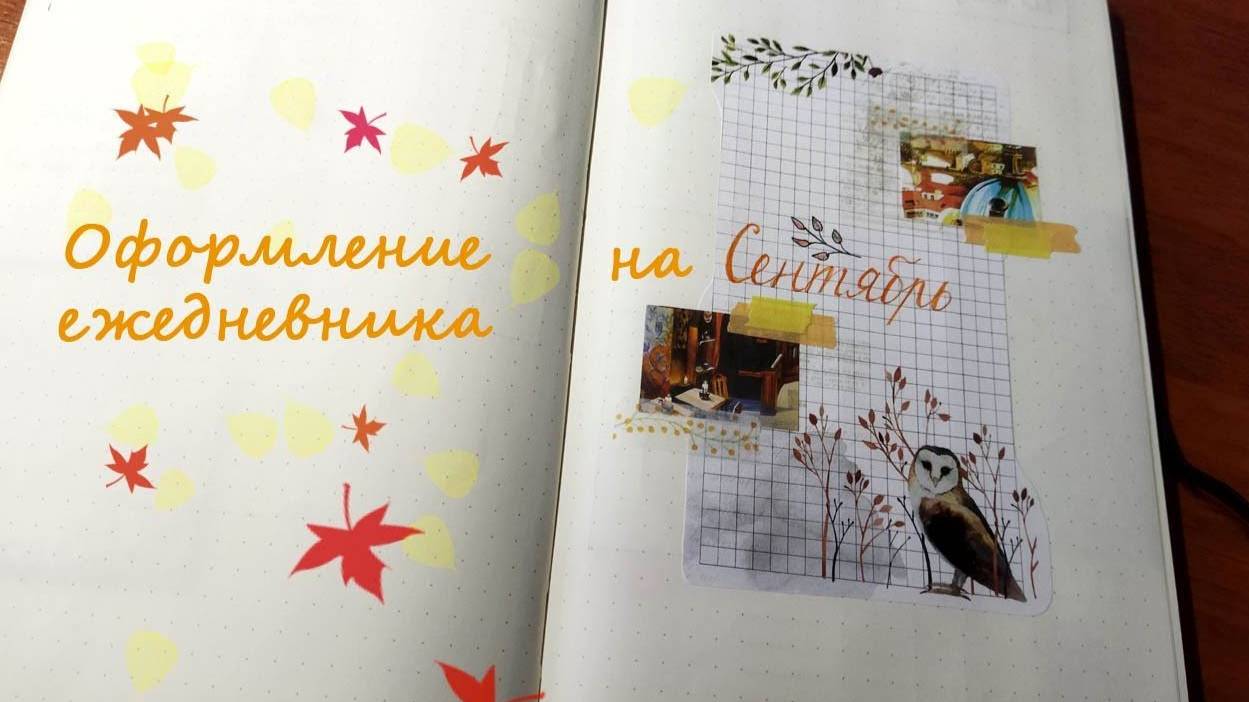 Оформление
ежедневника
на Сентябрь